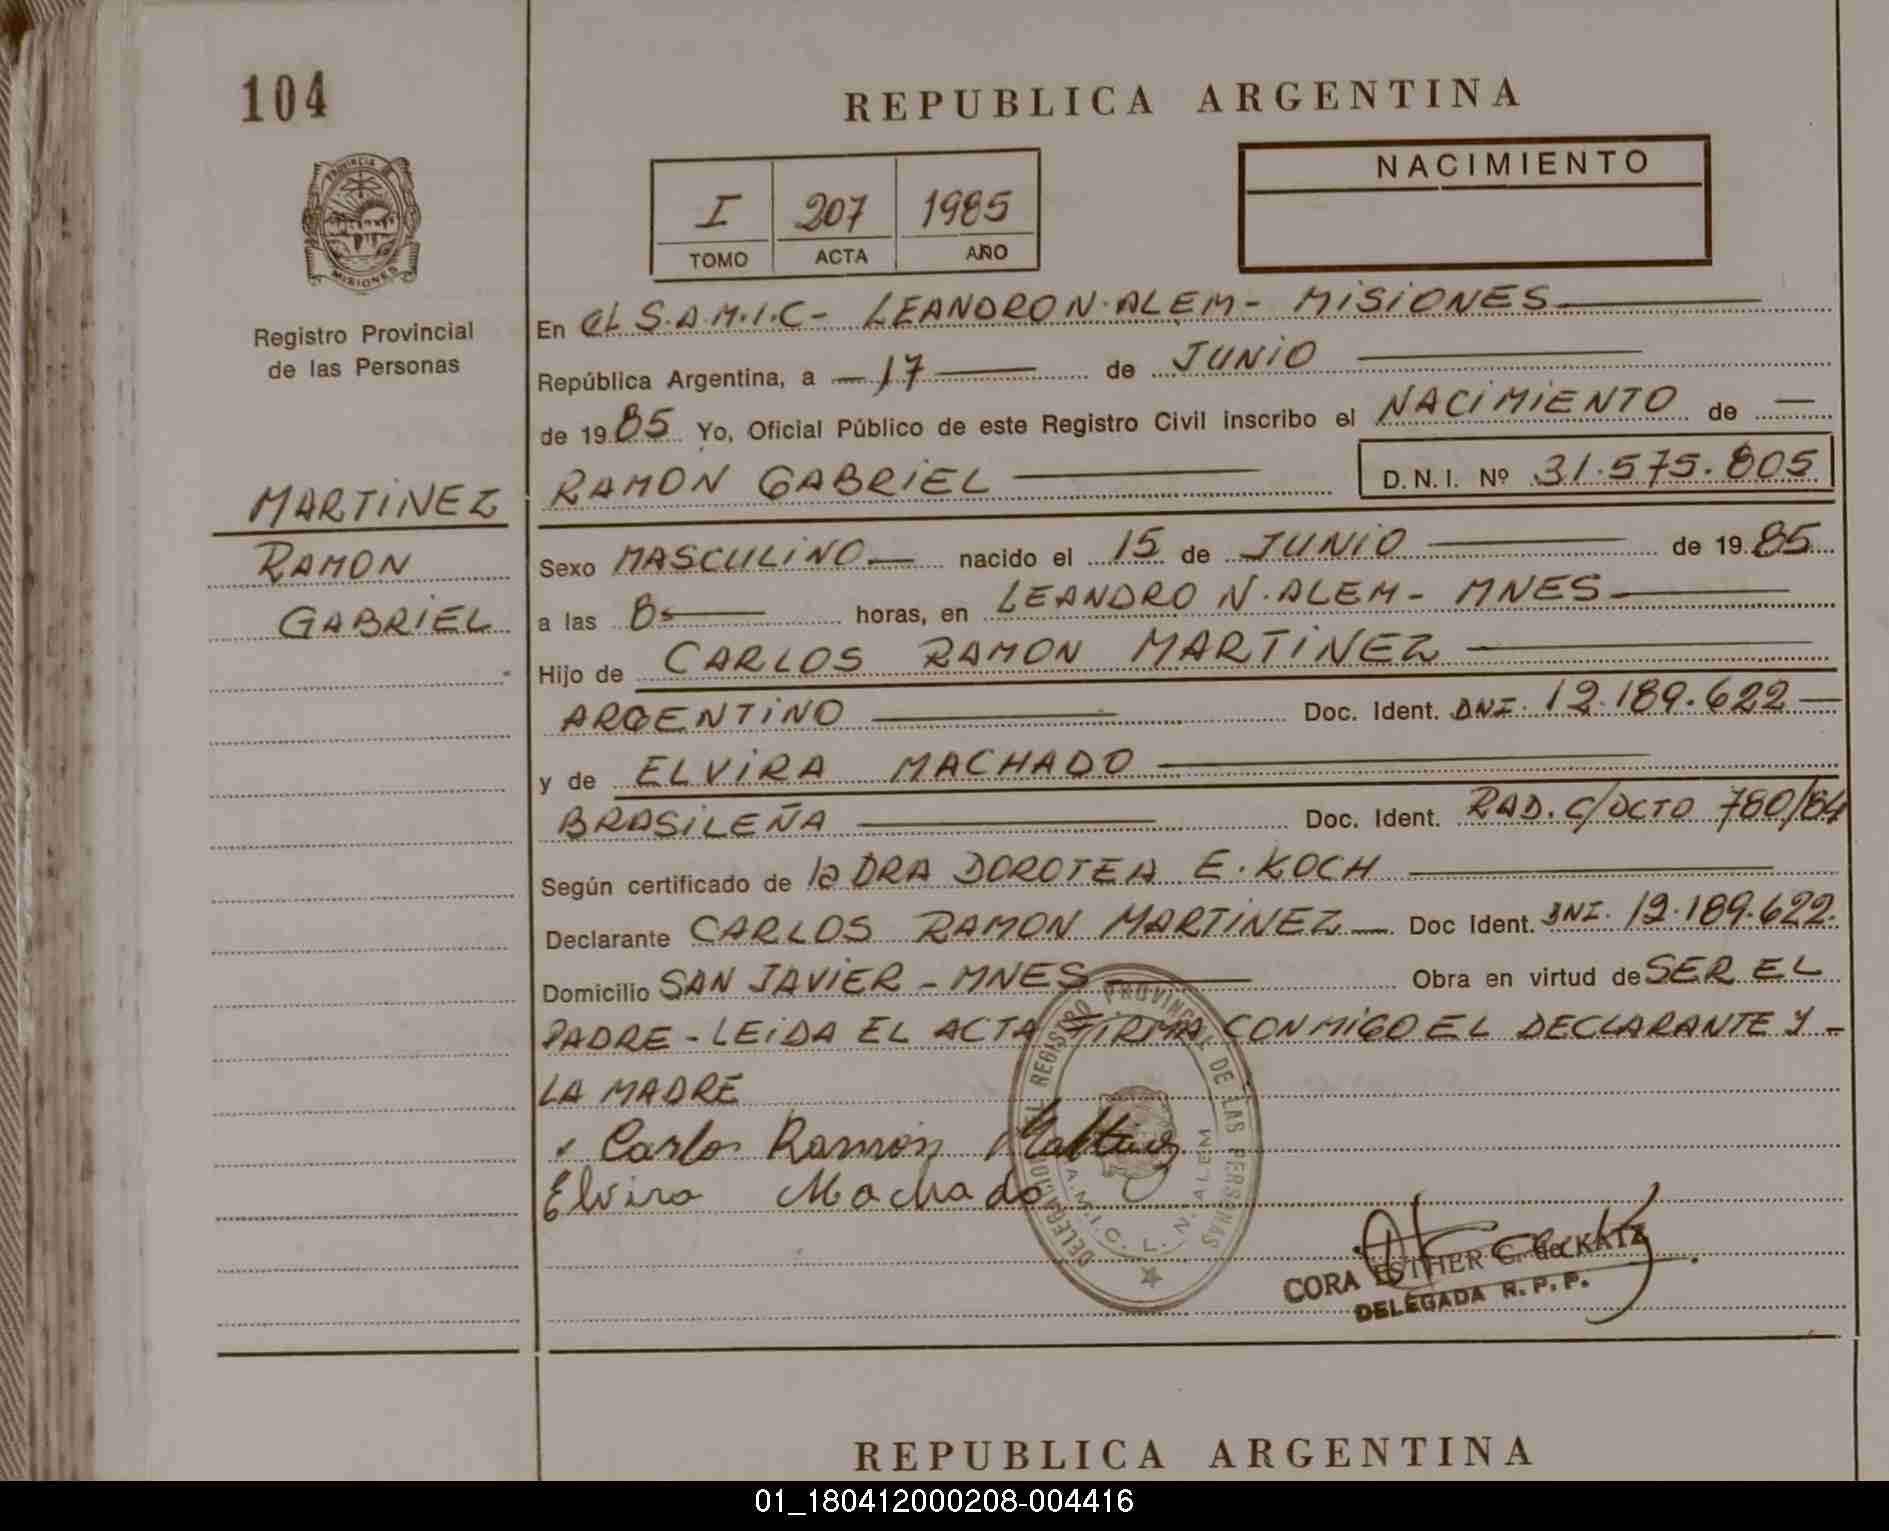 104
REPUBLICA ARGENTINA
NACIMIENTO
I 207 1985
TOMO ACTA AÑO
PROVINCIA DE
MISIONES
Registro Provincial
de las Personas
En el S.A.M.I.C- LEANDRO N. ALEM- MISIONES
República Argentina, a 17 de JUNIO
de 1985 Yo, Oficial Público de este Registro Civil inscribo el NACIMIENTO de
RAMON GABRIEL D.N.I. Nº 31.575.805
MARTINEZ
RAMON
GABRIEL
Sexo MASCULINO nacido el 15 de JUNIO de 1985
a las 8 horas, en LEANDRO N. ALEM- MNES
Hijo de CARLOS RAMON MARTINEZ
ARGENTINO Doc. Ident. DNI. 12.189.622
y de ELVIRA MACHADO
BRASILEÑA Doc. Ident. RAD. C/DCTO 780/84
Según certificado de la DRA DOROTEA E. KOCH
Declarante CARLOS RAMON MARTINEZ Doc Ident. DNI. 12.189.622.
Domicilio SAN JAVIER - MNES Obra en virtud de SER EL
PADRE - LEIDA EL ACTA FIRMA CONMIGO EL DECLARANTE Y -
LA MADRE
Carlos Ramón Martinez
Elvira Machado
DELEGACION DEL REGISTRO PROVINCIAL DE LAS PERSONAS
S.A.M.I.C. L. N. ALEM
CORA ESTHER C. de KATZ
DELEGADA R.P.P.
REPUBLICA ARGENTINA
01_180412000208-004416